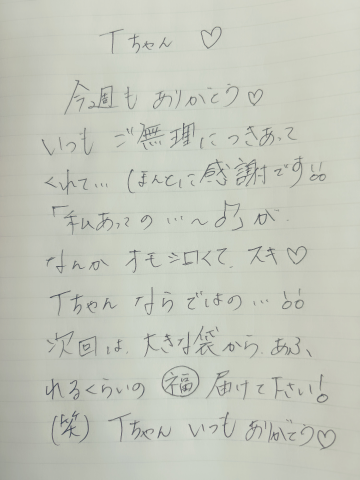 Tちゃん ♡
今週も ありがとう♡
いつも ご無理に つきあって
くれて… ほんとに感謝です!!
「私あっての…~♪」が
なんか オモシロくて、スキ♡
Tちゃん ならではの…!!
次回は、大きな袋から、あふ、
れるくらいの ㊗福 届けて下さい!
(笑) Tちゃん いつも ありがとう♡